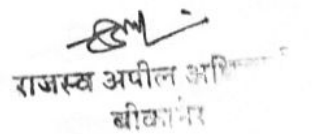 राजस्व अपील
बीकानेर